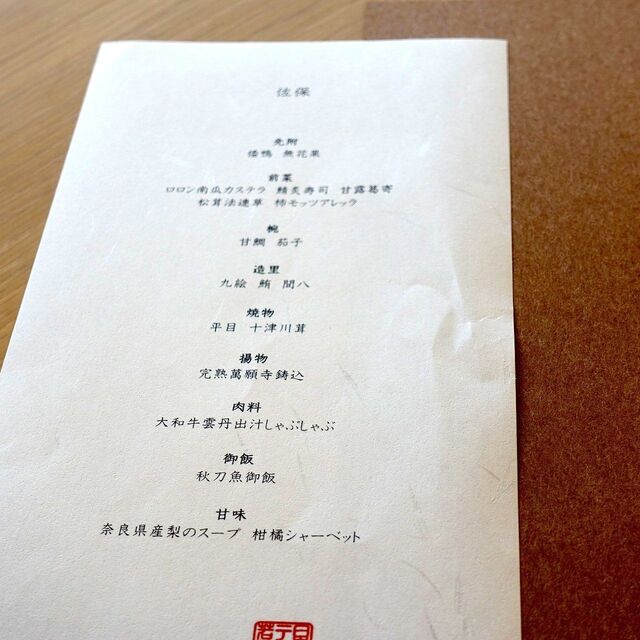 佐保
先附
倭鴨 無花果
前菜
ロロン南瓜カステラ 鯖炙寿司 甘露葛寄
松茸法連草 柿モッツアレッラ
椀
甘鯛 茄子
造里
九絵 鮪 間八
焼物
平目 十津川茸
揚物
完熟萬願寺鋳込
肉料
大和牛雲丹出汁しゃぶしゃぶ
御飯
秋刀魚御飯
甘味
奈良県産梨のスープ 柑橘シャーベット